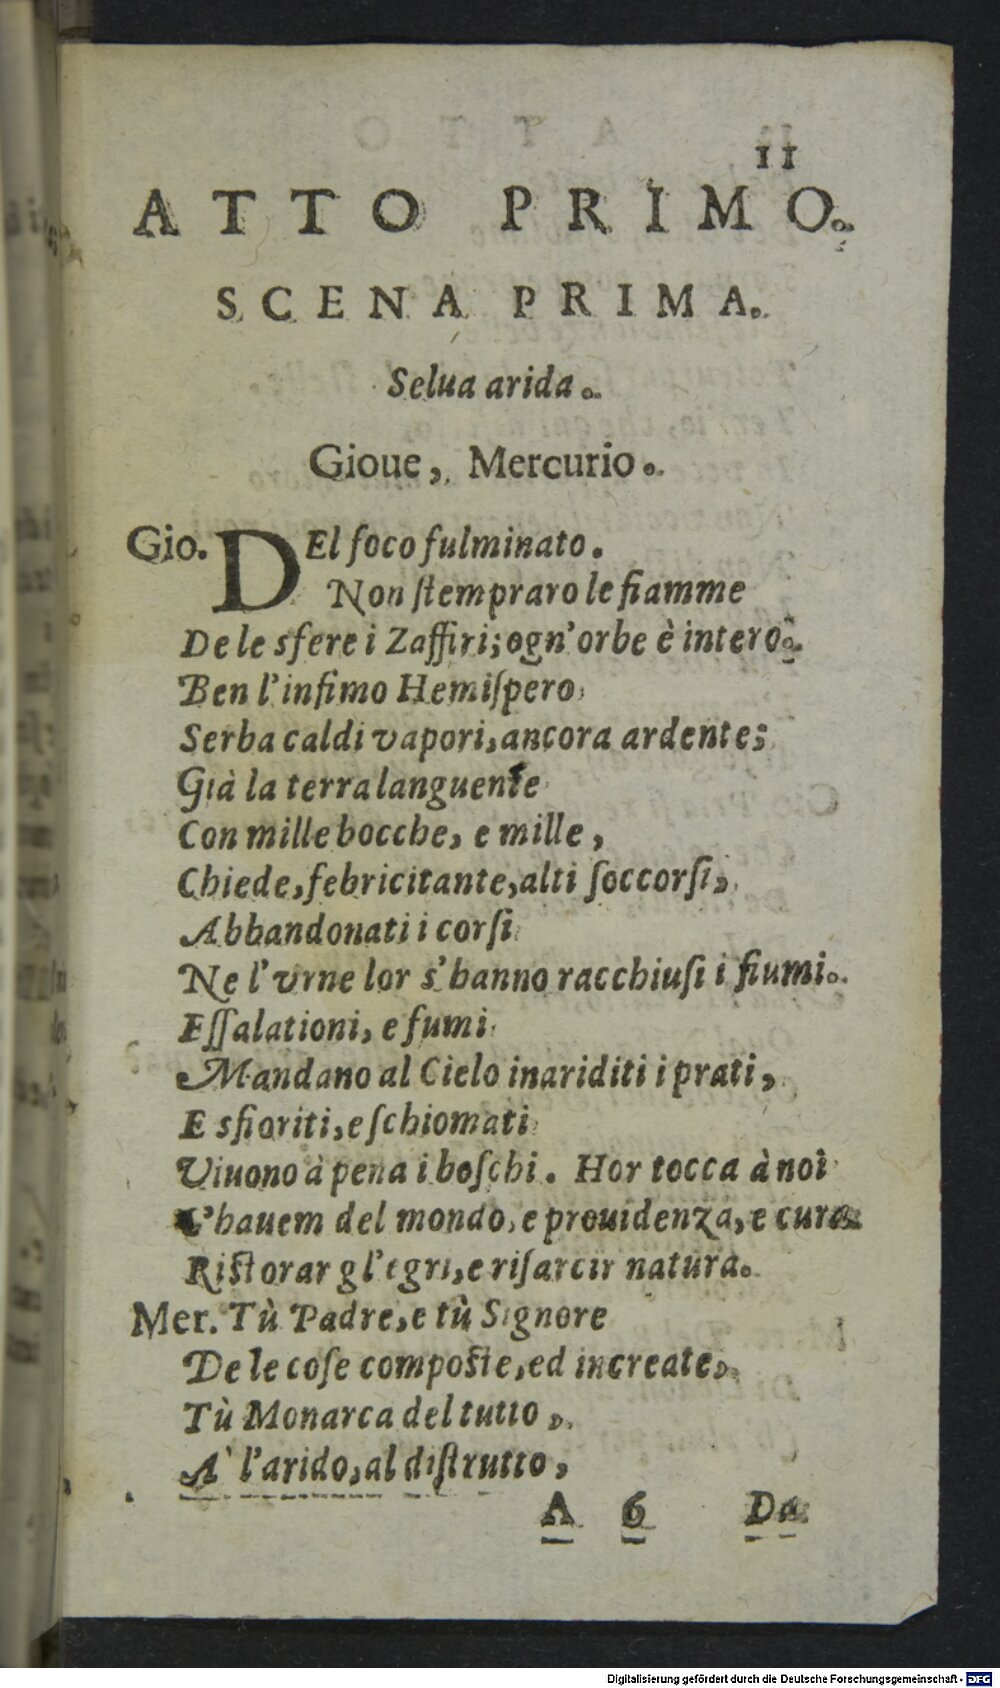 11
ATTO PRIMO.
SCENA PRIMA.
Selua arida.
Gioue, Mercurio.
Gio. DEl foco fulminato.
Non ſtempraro le fiamme
De le sfere i Zaffiri; ogn' orbe è intero.
Ben l'infimo Hemiſpero
Serba caldi vapori, ancora ardente;
Già la terra languente
Con mille bocche, e mille,
Chiede, febricitante, alti ſoccorſi,
Abbandonati i corſi
Ne l'vrne lor s'hanno racchiuſi i fiumi.
Eſſalationi, e fumi
Mandano al Cielo inariditi i prati,
E sfioriti, e ſchiomati
Viuono à pena i boſchi. Hor tocca à noi
C'hauem del mondo, e prouidenza, e cura
Riſtorar gl'egri, e riſarcir natura.
Mer. Tù Padre, e tù Signore
De le coſe compoſte, ed increate,
Tù Monarca del tutto,
A' l'arido, al diſtrutto,
A 6 Da
Digitalisierung gefördert durch die Deutsche Forschungsgemeinschaft - DFG